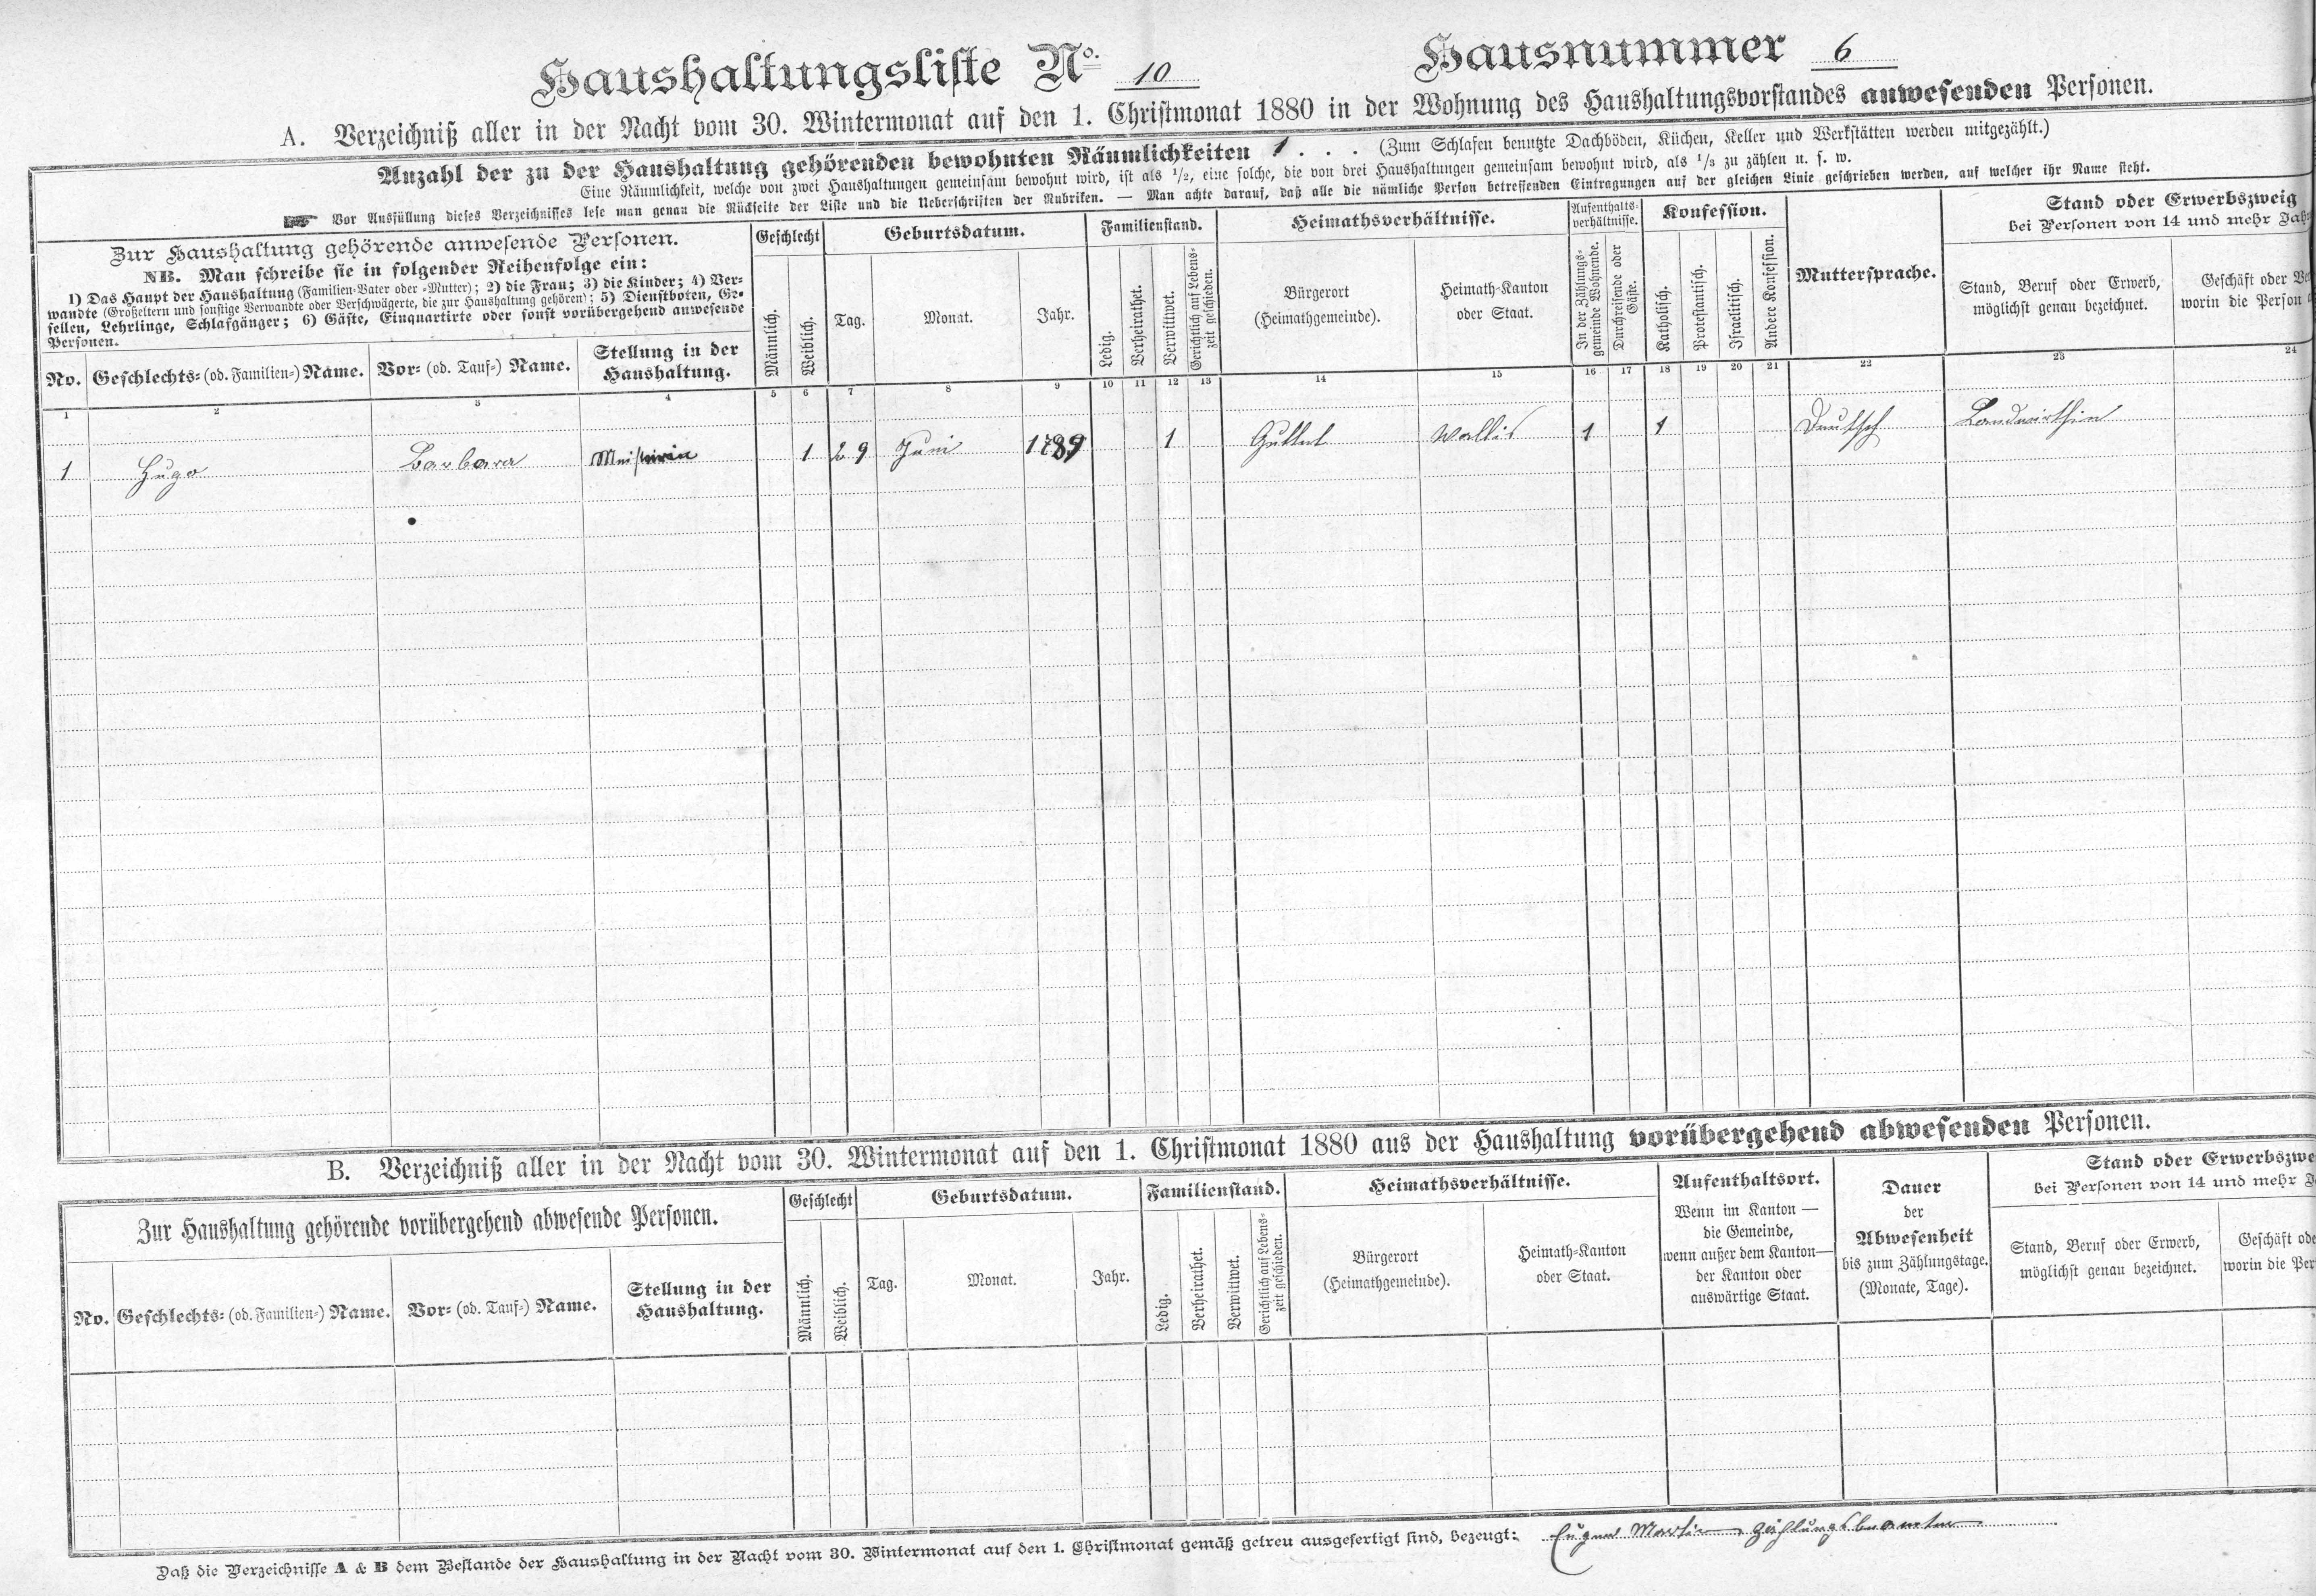 Haushaltungsliste No. 10 Hausnummer 6
A. Verzeichniß aller in der Nacht vom 30. Wintermonat auf den 1. Christmonat 1880 in der Wohnung des Haushaltungsvorstandes anwesenden Personen.
Anzahl der zu der Haushaltung gehörenden bewohnten Räumlichkeiten 1 . . . (Zum Schlafen benutzte Dachböden, Küchen, Keller und Werkstätten werden mitgezählt.)
Eine Räumlichkeit, welche von zwei Haushaltungen gemeinsam bewohnt wird, ist als 1/2, eine solche, die von drei Haushaltungen gemeinsam bewohnt wird, als 1/3 zu zählen u. s. w.
Vor Ausfüllung dieses Verzeichnisses lese man genau die Rückseite der Liste und die Ueberschriften der Rubriken. — Man achte darauf, daß alle die nämliche Person betreffenden Eintragungen auf der gleichen Linie geschrieben werden, auf welcher ihr Name steht.
Zur Haushaltung gehörende anwesende Personen.
NB. Man schreibe sie in folgender Reihenfolge ein:
1) Das Haupt der Haushaltung (Familien-Vater oder -Mutter); 2) die Frau; 3) die Kinder; 4) Ver-
wandte (Großeltern und sonstige Verwandte oder Verschwägerte, die zur Haushaltung gehören); 5) Dienstboten, Ge-
sellen, Lehrlinge, Schlafgänger; 6) Gäste, Einquartirte oder sonst vorübergehend anwesende
Personen.
No. Geschlechts- (od. Familien-) Name. Vor- (od. Tauf-) Name. Stellung in der
Haushaltung.
Geschlecht
Männlich.
Weiblich.
Geburtsdatum.
Tag. Monat. Jahr.
Familienstand.
Ledig.
Verheirathet.
Verwittwet.
Gerichtlich auf Lebens-
zeit geschieden.
Heimathsverhältnisse.
Bürgerort
(Heimathgemeinde).
Heimath-Kanton
oder Staat.
Aufenthalts-
verhältnisse.
In der Zählungs-
gemeinde Wohnende.
Durchreisende oder
Gäste.
Konfession.
Katholisch.
Protestantisch.
Israelitisch.
Andere Konfession.
Muttersprache.
Stand oder Erwerbszweig
bei Personen von 14 und mehr Jah
Stand, Beruf oder Erwerb,
möglichst genau bezeichnet.
Geschäft oder
worin die Person
1 2 3 4 5 6 7 8 9 10 11 12 13 14 15 16 17 18 19 20 21 22 23 24
1 Hugo Barbara Meisterin 1 29 Juni 1 Guttet Wallis 1 1 Deutsch Landwirthin
B. Verzeichniß aller in der Nacht vom 30. Wintermonat auf den 1. Christmonat 1880 aus der Haushaltung vorübergehend abwesenden Personen.
Zur Haushaltung gehörende vorübergehend abwesende Personen.
No. Geschlechts- (od. Familien-) Name. Vor- (od. Tauf-) Name. Stellung in der
Haushaltung.
Geschlecht
Männlich.
Weiblich.
Geburtsdatum.
Tag. Monat. Jahr.
Familienstand.
Ledig.
Verheirathet.
Verwittwet.
Gerichtlich auf Lebens-
zeit geschieden.
Heimathsverhältnisse.
Bürgerort
(Heimathgemeinde).
Heimath-Kanton
oder Staat.
Aufenthaltsort.
Wenn im Kanton —
die Gemeinde,
wenn außer dem Kanton—
der Kanton oder
auswärtige Staat.
Dauer
der
Abwesenheit
bis zum Zählungstage.
(Monate, Tage).
Stand oder Erwerbszwe
bei Personen von 14 und mehr J
Stand, Beruf oder Erwerb,
möglichst genau bezeichnet.
Geschäft ode
worin die Per
Daß die Verzeichnisse A & B dem Bestande der Haushaltung in der Nacht vom 30. Wintermonat auf den 1. Christmonat gemäß getreu ausgefertigt sind, bezeugt: Eugen Martin Zählungsbeamter